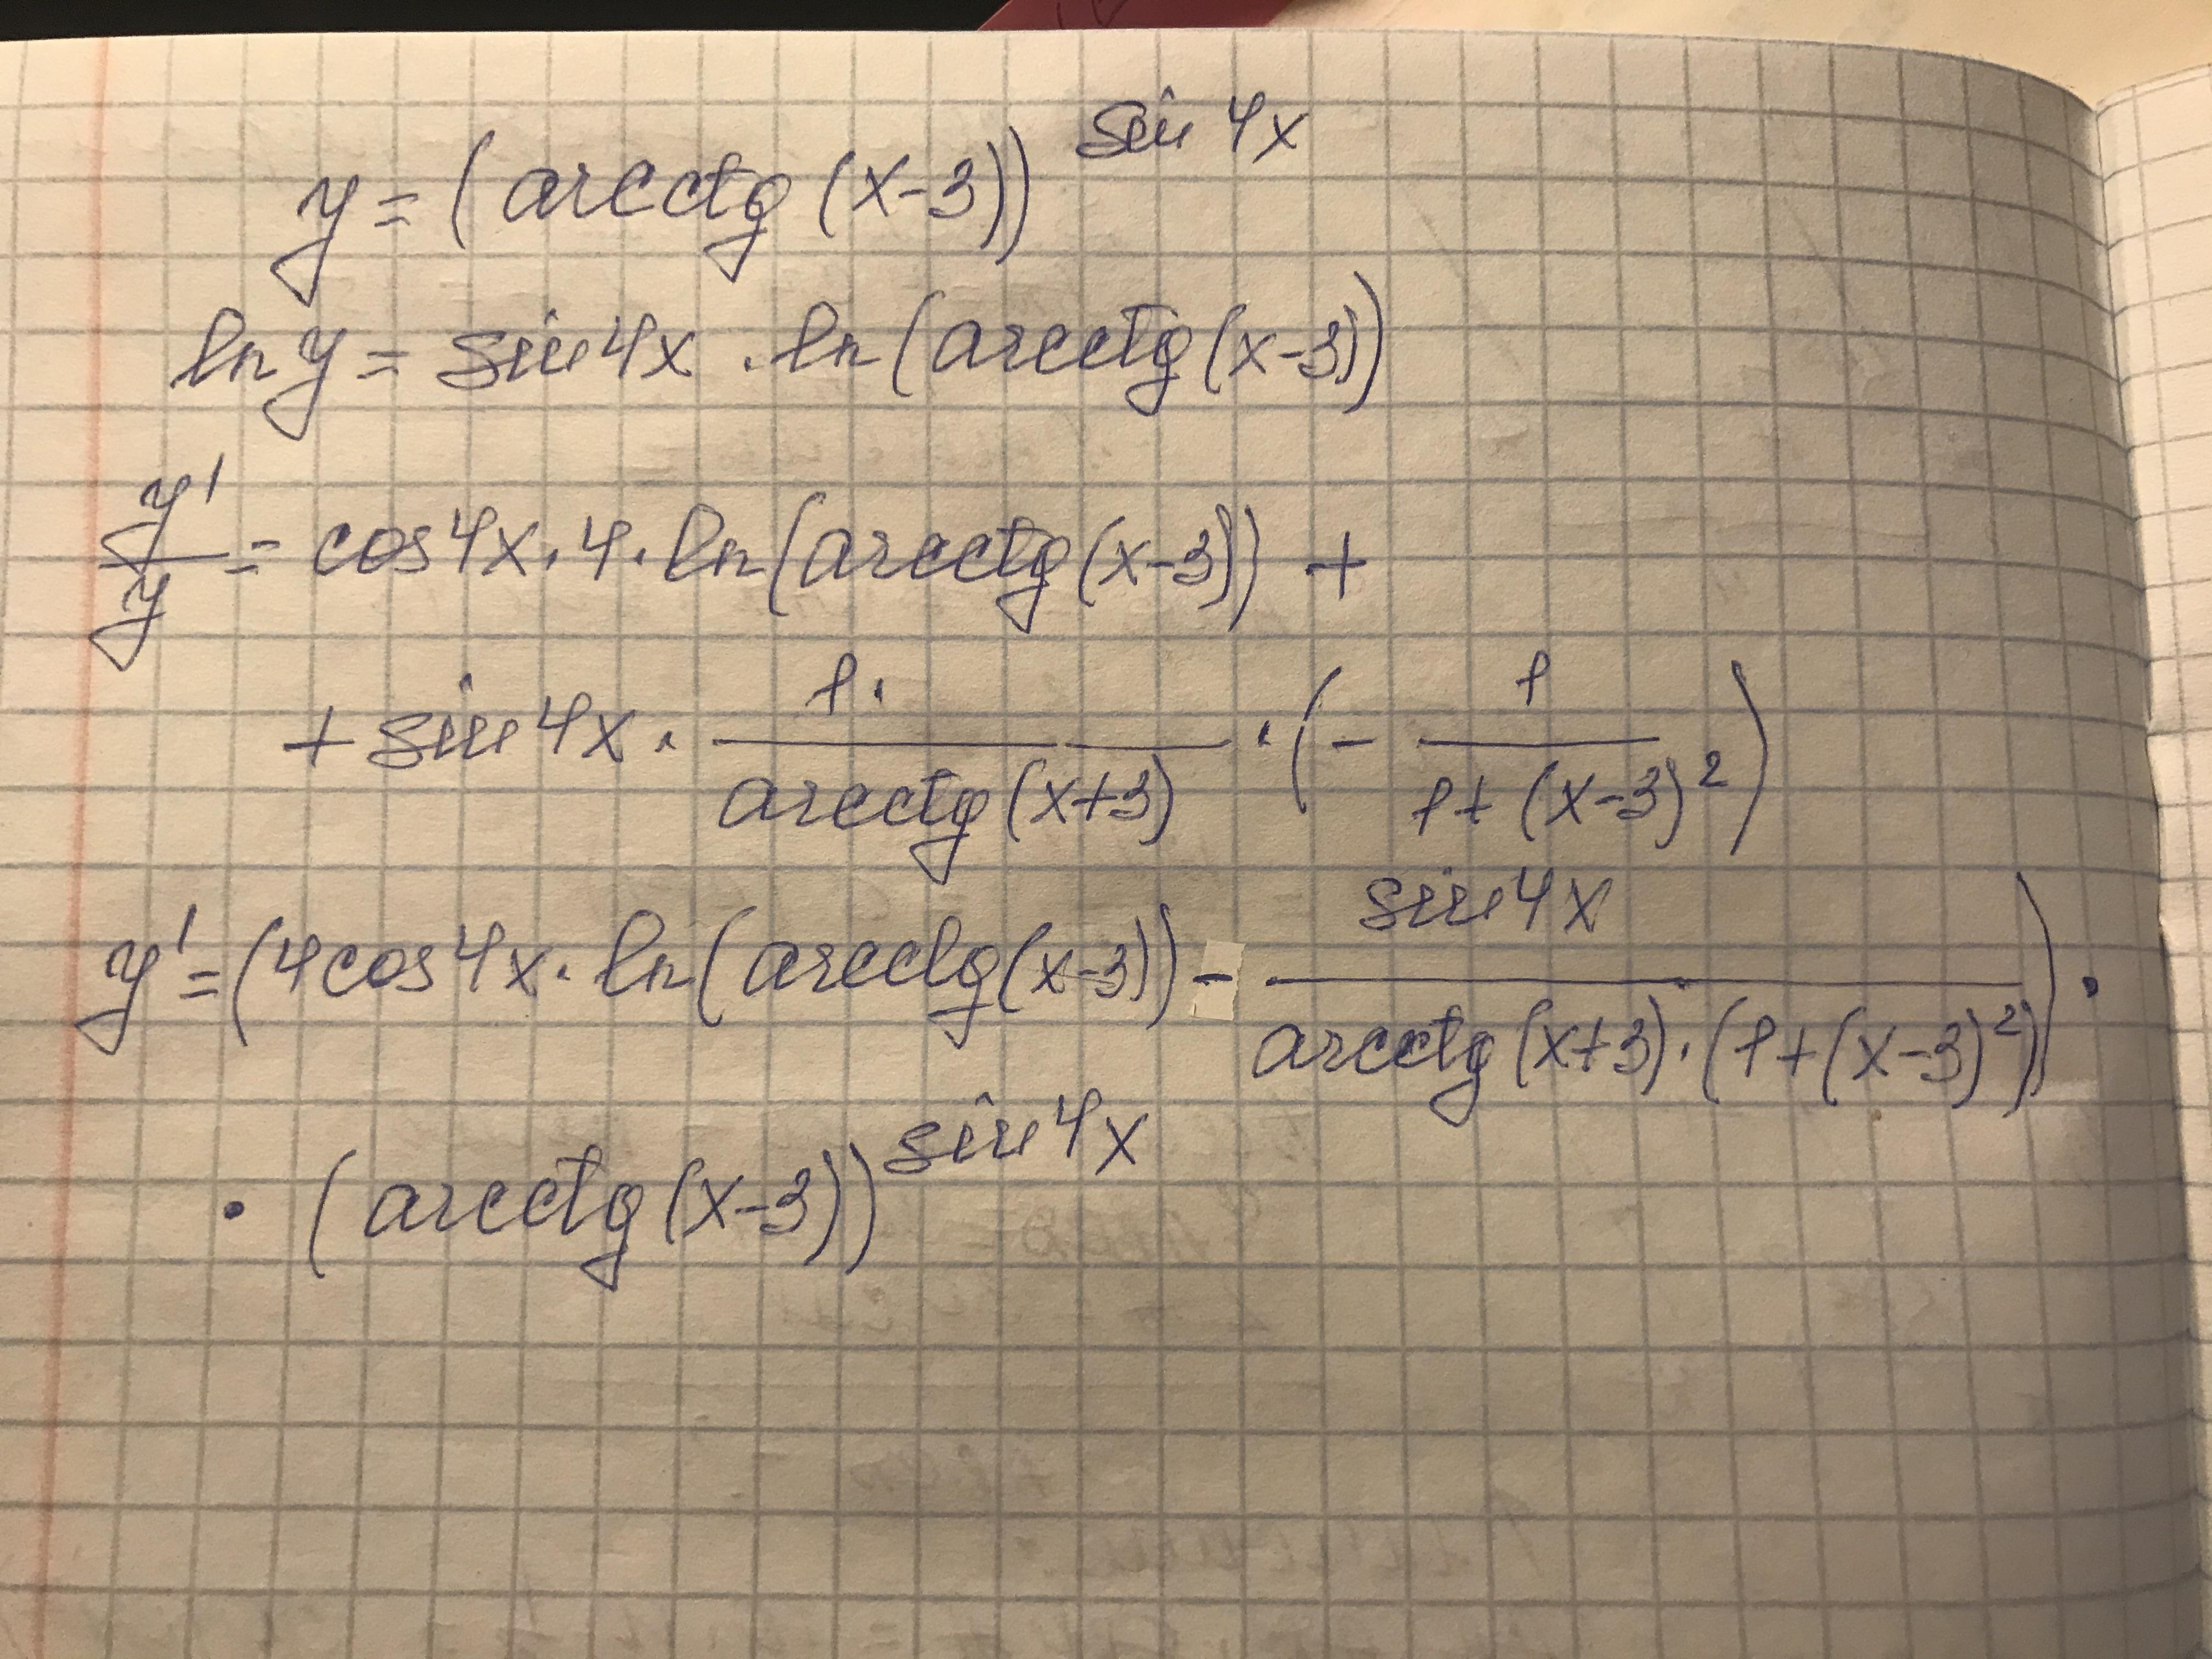 y = (arcctg (x-3))^sin 4x
ln y = sin 4x · ln (arcctg (x-3))
y'/y = cos 4x · 4 · ln (arcctg (x-3)) +
+ sin 4x · 1·/arcctg (x+3) · (- 1/1+ (x-3)^2)
y' = (4 cos 4x · ln (arcctg (x-3)) - sin 4x/arcctg (x+3) · (1+(x-3)^2)) ·
· (arcctg (x-3))^sin 4x